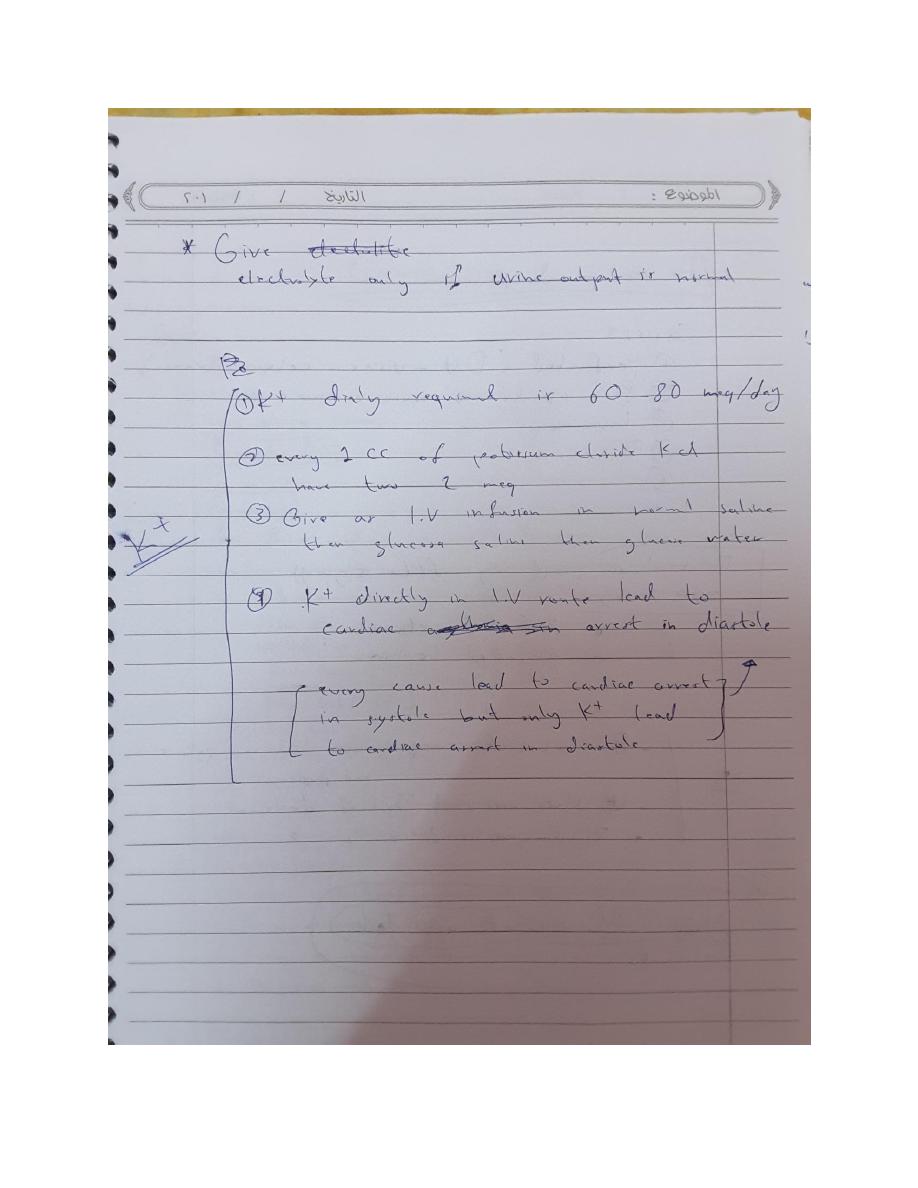 الموضوع : التاريخ / / ٢٠١
* Give
electrolyte only if urine output is normal
① K+ dialy required is 60 - 80 meq/day
② every 1 CC of potassium cloride Kcl
have two 2 meq
③ Give as I.V infusion in normal saline
then glucose saline then glucose water
K+
④ K+ directly in I.V route lead to
cardiac arrest in diastole
[ every cause lead to cardiac arrest
in systole but only K+ lead
to cardiac arrest in diastole ]